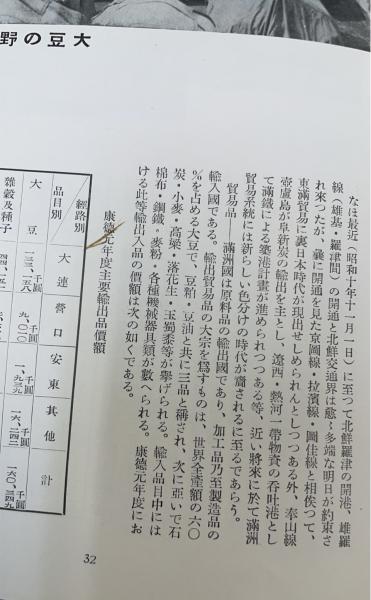 大豆の野
なほ最近（昭和十年十一月一日）に至つて北鮮羅津の開港、雄羅
線（雄基・羅津間）の開通と北鮮交通界は愈〻多端な明日が約束さ
れ來つたが、曩に開通を見た京圖線・拉濱線・圖佳線と相俟つて、
東滿貿易に裏日本時代が現出せしめられんとしつつある外、奉山線
壺盧島が阜新炭の輸出を主とし、遼西・熱河一帶物資の吞吐港とし
て滿鐵による築港計畫が進められつつある等、近い將來に於て滿洲
貿易系統には新らしい色分けの時代が齎されるに至るであらう。
貿易品　滿洲國は原料品の輸出國であり、加工品乃至製造品の
輸入國である。輸出貿易品の大宗を爲すものは、世界全產額の六〇
％を占める大豆で、豆粕・豆油と共に三品と稱され、次に亞いで石
炭・小麥・高粱・落花生・玉蜀黍等が擧げられる。輸入品目中には
棉布・鋼鐵・麥粉・各種機械器具類が數へられる。康德元年度にお
ける此等輸出入品の價額は次の如くである。
康德元年度主要輸出品價額
經路別 品目別 大連 營口 安東 其他 計
大豆 千圓 千圓 千圓 千圓 千圓
雜穀及種子
32